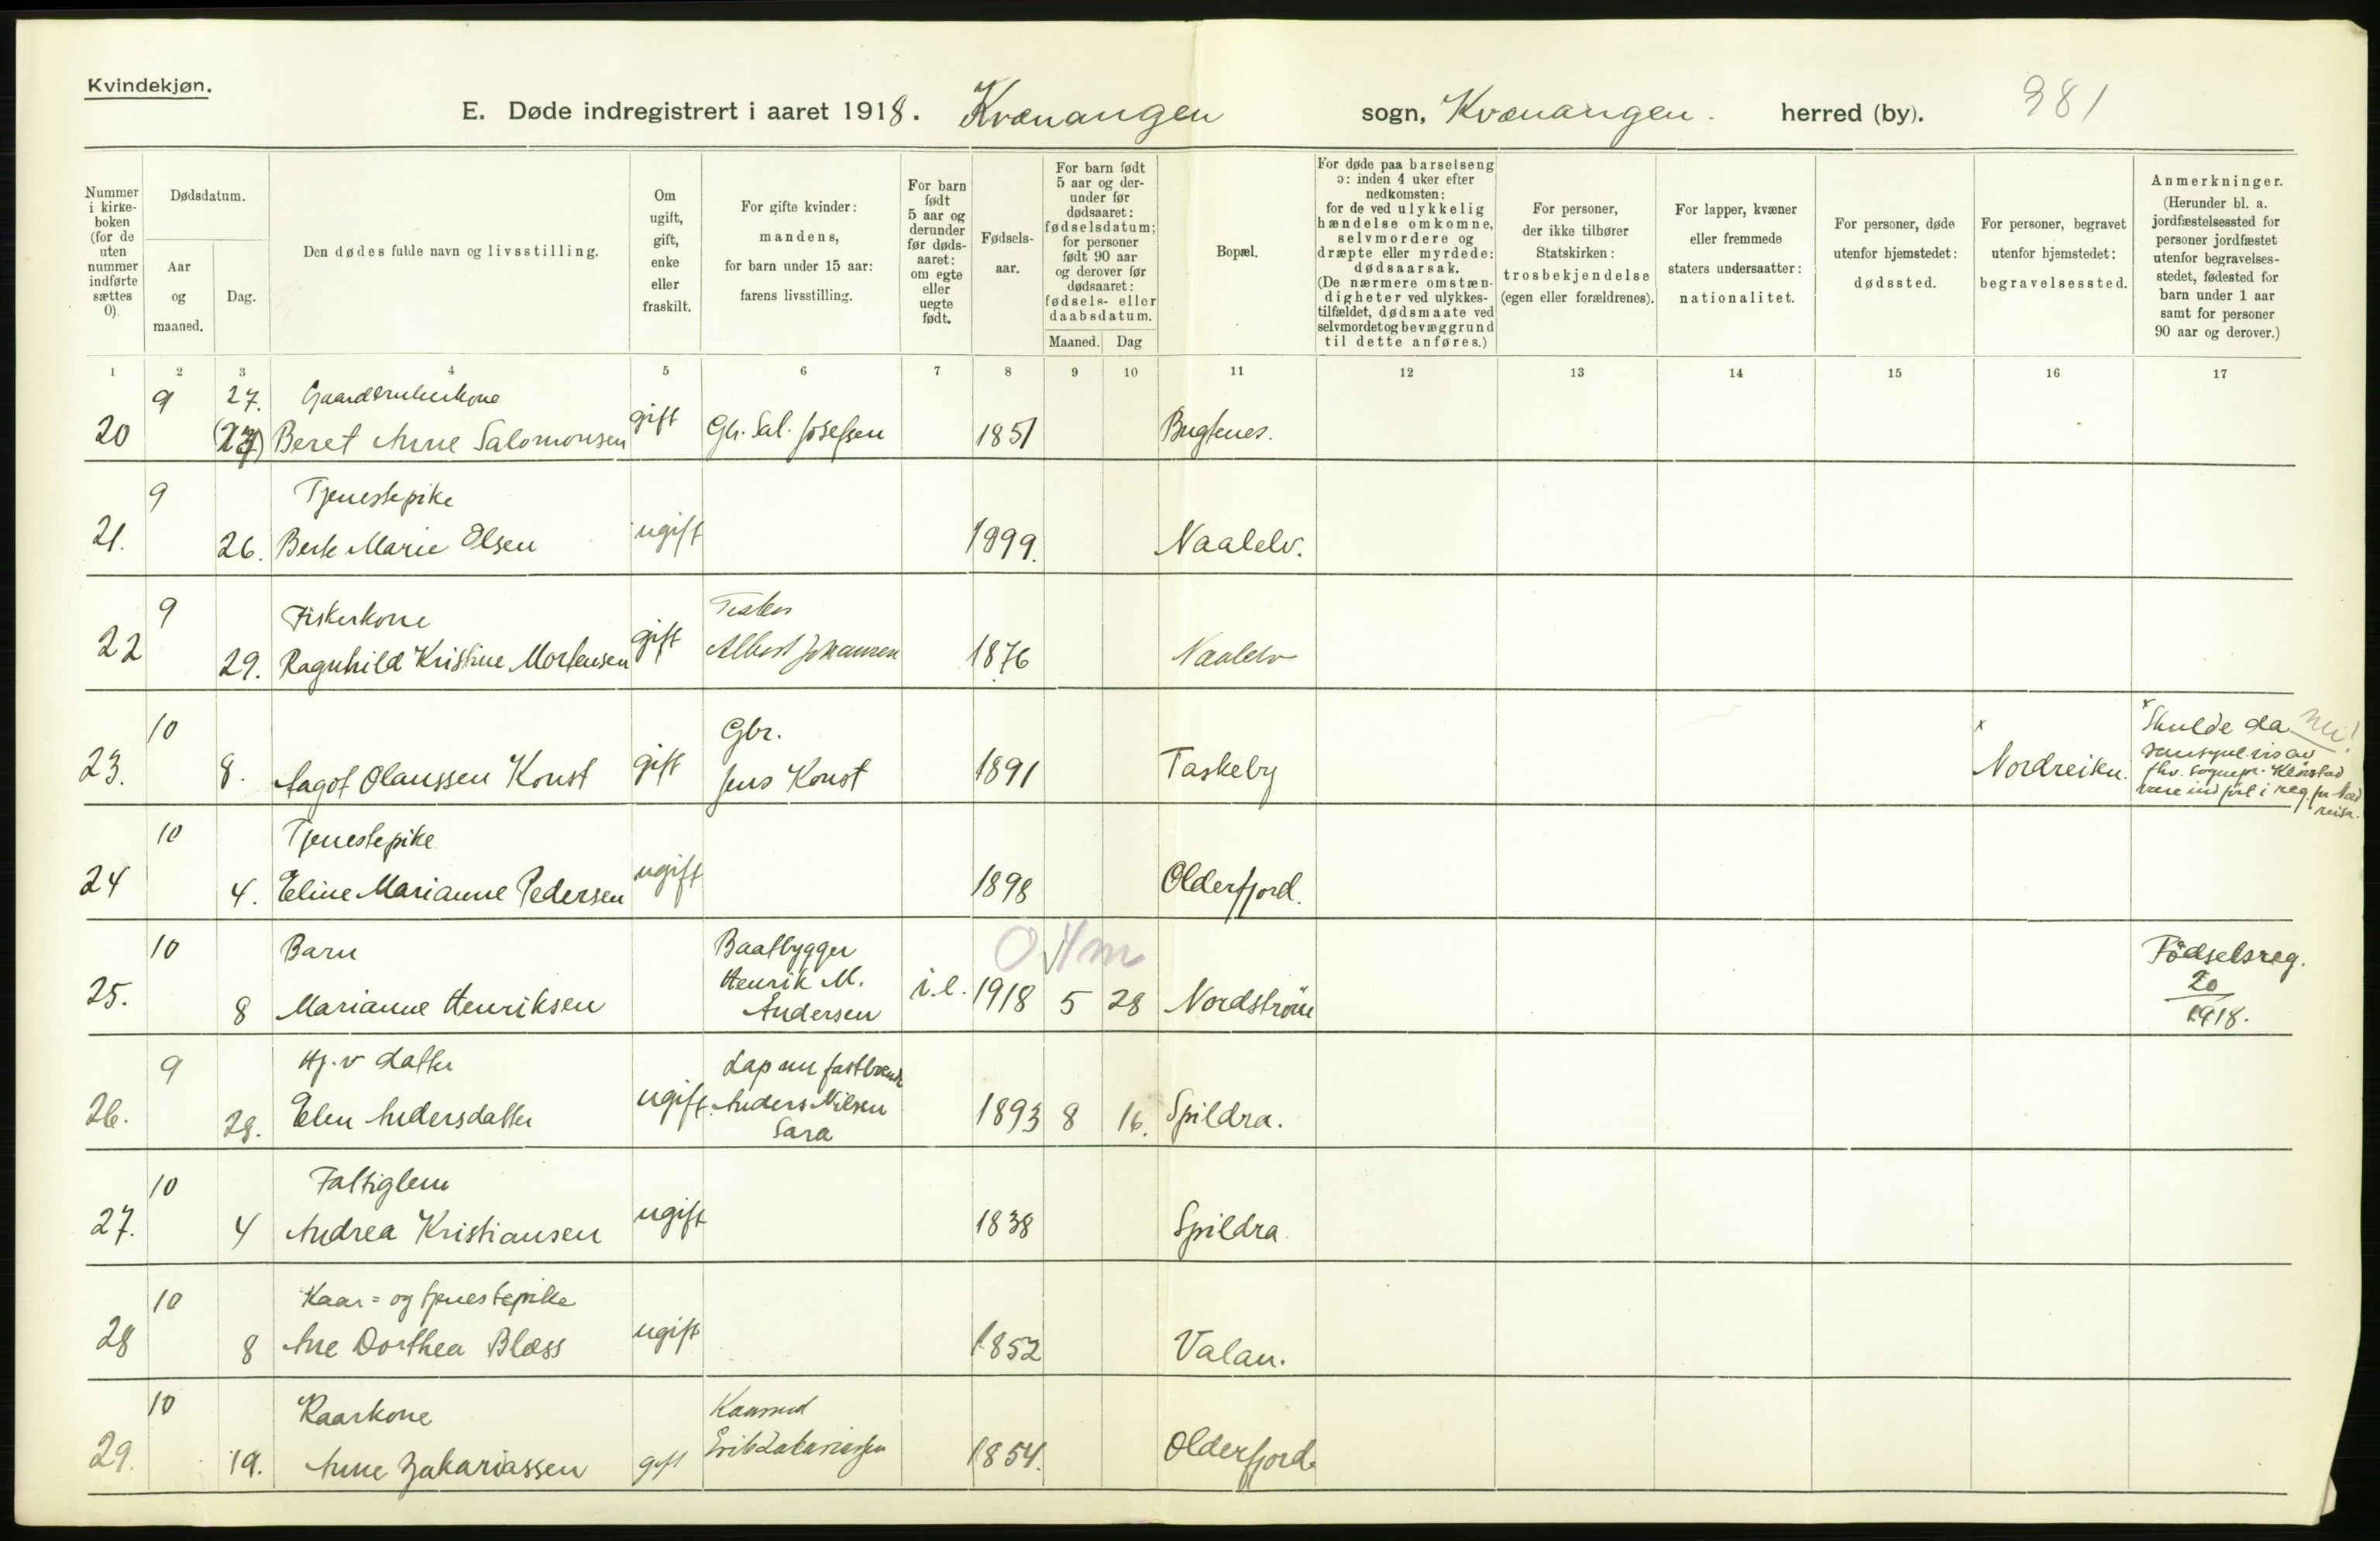 Kvindekjøn.
E. Døde indregistrert i aaret 1918. Kvænangen sogn, Kvænangen. herred (by). 381
Nummer i kirkeboken (for de uten nummer indførte sættes 0).
Dødsdatum.
Aar og maaned.
Dag.
Den dødes fulde navn og livsstilling.
Om ugift, gift, enke eller fraskilt.
For gifte kvinder: mandens, for barn under 15 aar: farens livsstilling.
For barn født 5 aar og derunder før dødsaaret: om egte eller uegte født.
Fødselsaar.
For barn født 5 aar og derunder før dødsaaret: fødselsdatum; for personer født 90 aar og derover før dødsaaret: fødsels- eller daabsdatum.
Maaned. Dag
Bopæl.
For døde paa barselseng ɔ: inden 4 uker efter nedkomsten: for de ved ulykkelig hændelse omkomne, selvmordere og dræpte eller myrdede: dødsaarsak. (De nærmere omstændigheter ved ulykkestilfældet, dødsmaate ved selvmordet og bevæggrund til dette anføres.)
For personer, der ikke tilhører Statskirken: trosbekjendelse (egen eller forældrenes).
For lapper, kvæner eller fremmede staters undersaatter: nationalitet.
For personer, døde utenfor hjemstedet: dødssted.
For personer, begravet utenfor hjemstedet: begravelsessted.
Anmerkninger. (Herunder bl. a. jordfæstelsessted for personer jordfæstet utenfor begravelsesstedet, fødested for barn under 1 aar samt for personer 90 aar og derover.)
1 2 3 4 5 6 7 8 9 10 11 12 13 14 15 16 17
9 27. Gaardbrukerkone
20 (27) Beret Anne Salomonsen gift Gbr. Sal. Josefsen 1851 Bugtnes.
9 Tjenestepike
21. 26. Berte Marie Olsen ugift 1899. Naalelv.
9 Fiskerkone Fisker
22 29. Ragnhild Kristine Mortensen gift Albert Johansen 1876 Naalelv
10 Gbr.
23. 8. Aagot Olaussen Konst gift Jens Konst 1891 Taskeby x Nordreisen.
x Skulde da
sansynlevis av
fhv. sognepr. Klørstad
være indført i reg. for Nord
reisa.
10 Tjenestepike
24 4. Eline Marianne Pedersen ugift 1898 Olderfjord.
10 Barn Baatbygger 0 4m Fødselsreg.
25. 8 Marianne Henriksen Henrik M. Andersen i.e. 1918 5 28 Nordstrøm 20
1918.
9 Hj. v datter Lap nu fastboende
26. 28. Elen Andersdatter ugift. Anders Nilsen Sara 1893 8 16. Spildra.
10 Fattiglem
27. 4 Andrea Kristiansen ugift 1838 Spildra
10 Kaar- og tjenestepike
28 8 Ane Dorthea Blæss ugift 1852 Valan.
10 Kaarkone Kaarmand
29. 19. Anne Zakariassen gift Erik Zakariassen 1854. Olderfjord.